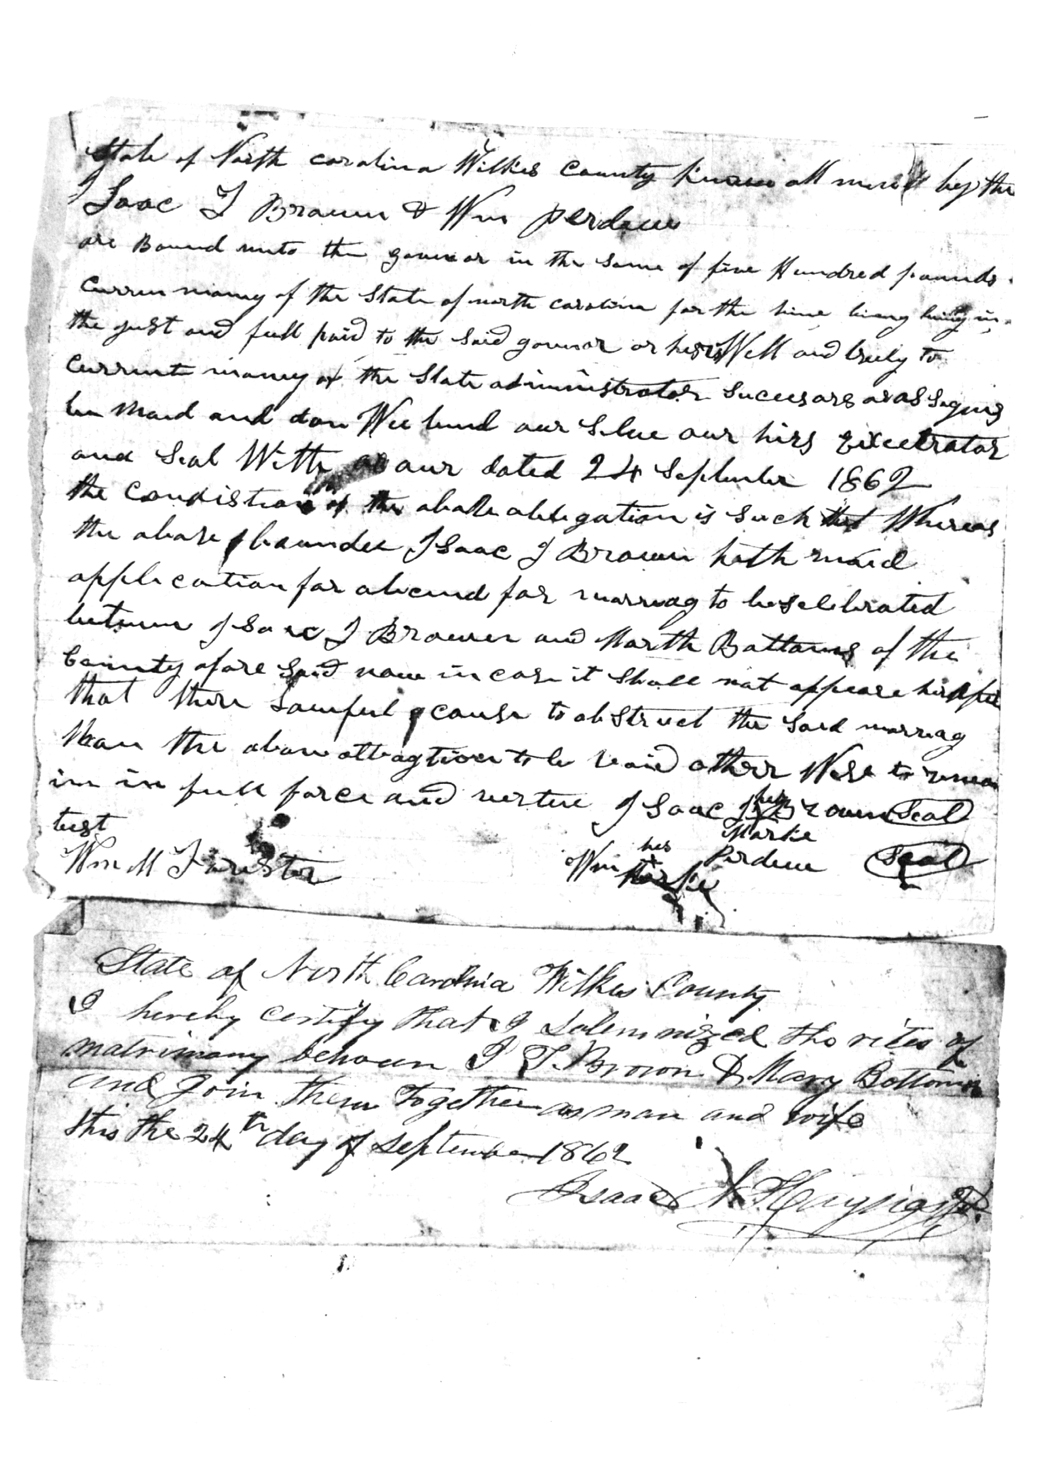 State of North carolina Wilkes County know all men by the
Isaac J Brown & Wm perdew
are Bound unto the govenor in the Some of five Hundred pounds
Curren money of the State of north carolina for the time being
the just and full paid to the said govnor or Well and truly to
Current money of the State administrator Sucessors or assigns
be Maid and don Wee bind our Selve our hirs
and Seal With our dated 24 September 1862
the Condistion of the above abligation is Such that Whereas
the above bounden Isaac J Brown hath maid
application for a for marriag to be Selebrated
between Isaac J Brown and Marth Bottoms of the
County afore Said now in case it Shall not appeare
that there Lawful cause to abStruct the Said marriag
than the above to be void other Wise to
in in full force and vertue Isaac J his Brown Seal
Marke
test
Wm M Forester Wm his Perdew Seal
Marke
State of North Carolina Wilkes County
I hereby certify that I Solemnized the rites of
matrimony between I J. Brown & Mary Bottoms
and Join them Together as man and wife
this the 24th day of September 1862
Isaac